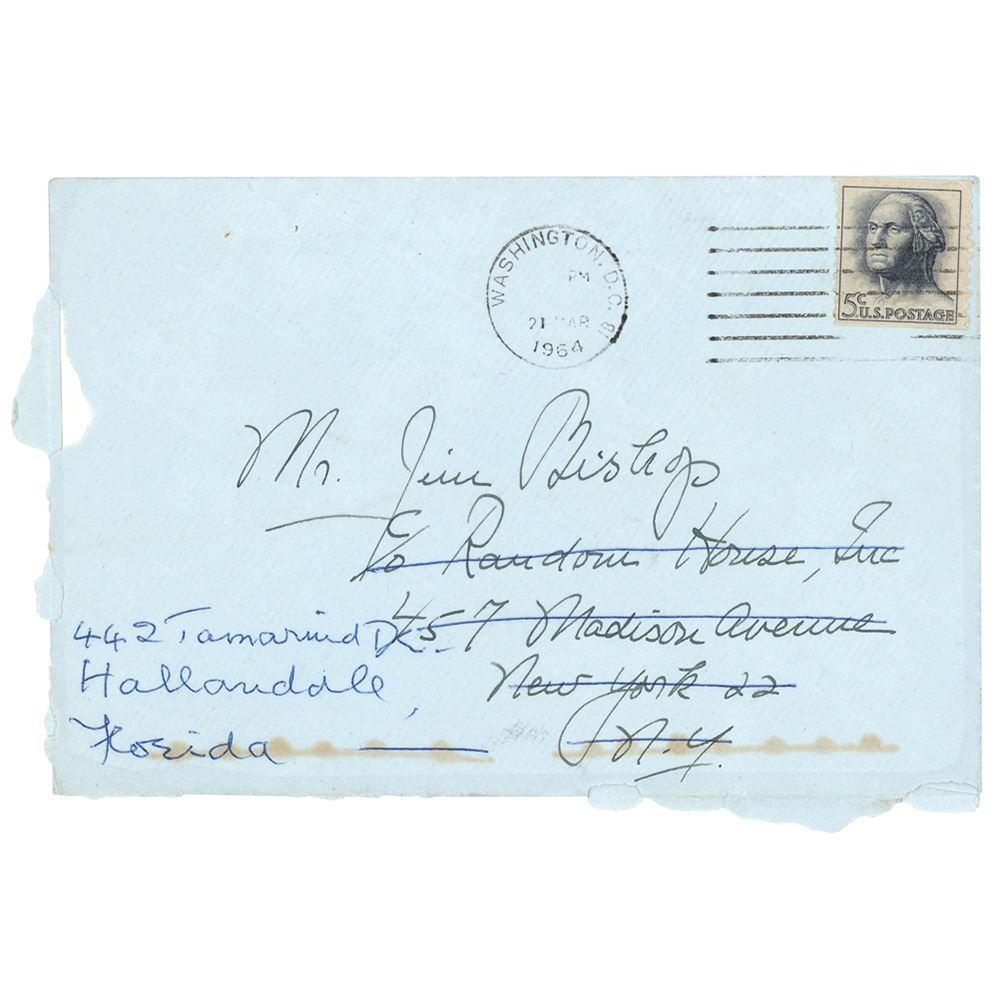 WASHINGTON, D.C.
PM
21 MAR
1964
5c
U.S. POSTAGE
Mr. Jim Bishop
c/o Random House, Inc
457 Madison Avenue
New York 22
N.Y.
442 Tamarind Dr.
Hallandale,
Florida